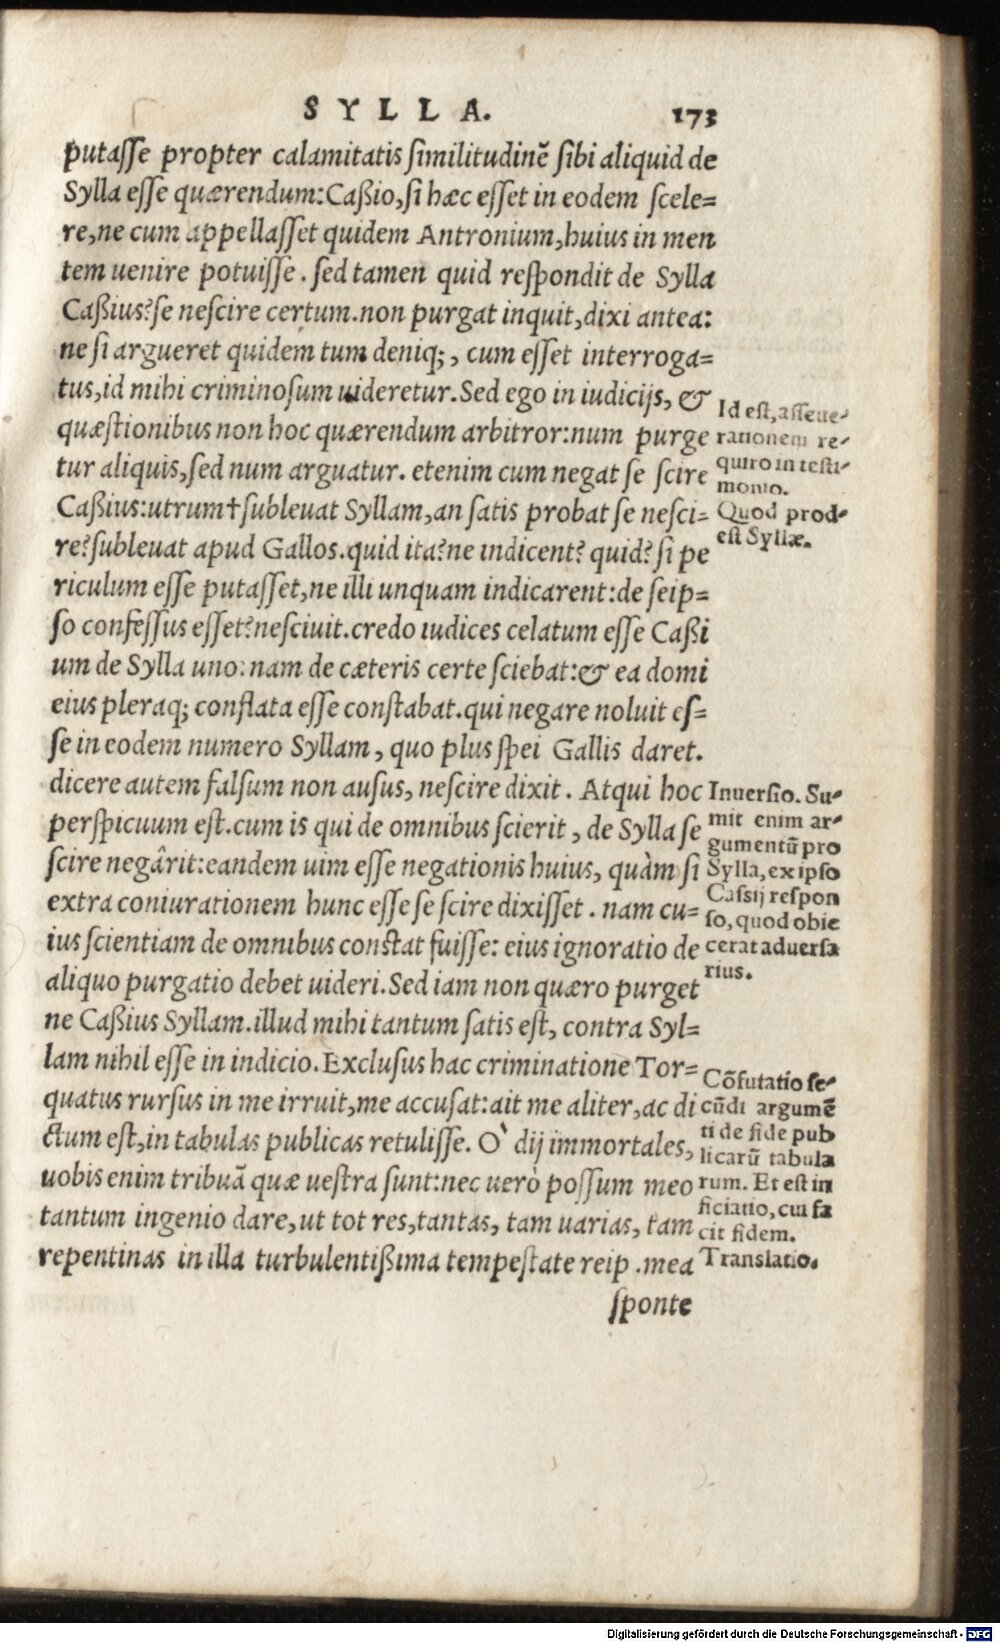 SYLLA. 173
putasse propter calamitatis similitudinē sibi aliquid de
Sylla esse quærendum: Caßio, si hæc esset in eodem scele=
re, ne cum appellasset quidem Antronium, huius in men
tem uenire potuisse. sed tamen quid respondit de Sylla
Caßius? se nescire certum. non purgat inquit, dixi antea:
ne si argueret quidem tum deniq;, cum esset interroga=
tus, id mihi criminosum uideretur. Sed ego in iudicijs, &
quæstionibus non hoc quærendum arbitror: num purge
tur aliquis, sed num arguatur. etenim cum negat se scire
Caßius: utrum † subleuat Syllam, an satis probat se nesci=
re? subleuat apud Gallos. quid ita? ne indicent? quid? si pe
riculum esse putasset, ne illi unquam indicarent: de seip=
so confessus esset? nesciuit. credo iudices celatum esse Caßi
um de Sylla uno: nam de cæteris certe sciebat: & ea domi
eius pleraq; conflata esse constabat. qui negare noluit es=
se in eodem numero Syllam, quo plus spei Gallis daret.
dicere autem falsum non ausus, nescire dixit. Atqui hoc
perspicuum est. cum is qui de omnibus scierit, de Sylla se
scire negârit: eandem uim esse negationis huius, quàm si
extra coniurationem hunc esse se scire dixisset. nam cu=
ius scientiam de omnibus constat fuisse: eius ignoratio de
aliquo purgatio debet uideri. Sed iam non quæro purget
ne Caßius Syllam. illud mihi tantum satis est, contra Syl=
lam nihil esse in indicio. Exclusus hac criminatione Tor=
quatus rursus in me irruit, me accusat: ait me aliter, ac di
ctum est, in tabulas publicas retulisse. Ò dij immortales,
uobis enim tribuā quæ uestra sunt: nec uerò possum meo
tantum ingenio dare, ut tot res, tantas, tam uarias, tam
repentinas in illa turbulentißima tempestate reip. mea
sponte
Id est, asseue-
rationem re-
quiro in testi-
monio.
Quod prod-
est Syllæ.
Inuersio. Su-
mit enim ar-
gumentū pro
Sylla, ex ipso
Cassij respon
so, quod obie
cerat aduersa
rius.
Cōfutatio se-
cūdi argumē
ti de fide pub
licarū tabula
rum. Et est in
ficiatio, cui fa
cit fidem.
Translatio.
Digitalisierung gefördert durch die Deutsche Forschungsgemeinschaft - DFG